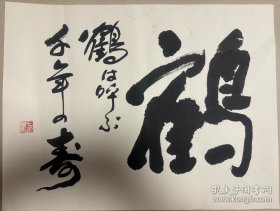 鶴
鶴は呼ぶ
千年の寿
孔夫子旧书网